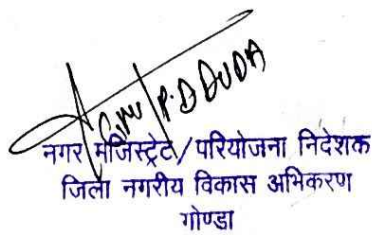 P.D DUDA
नगर मजिस्ट्रेट/परियोजना निदेशक
जिला नगरीय विकास अभिकरण
गोण्डा